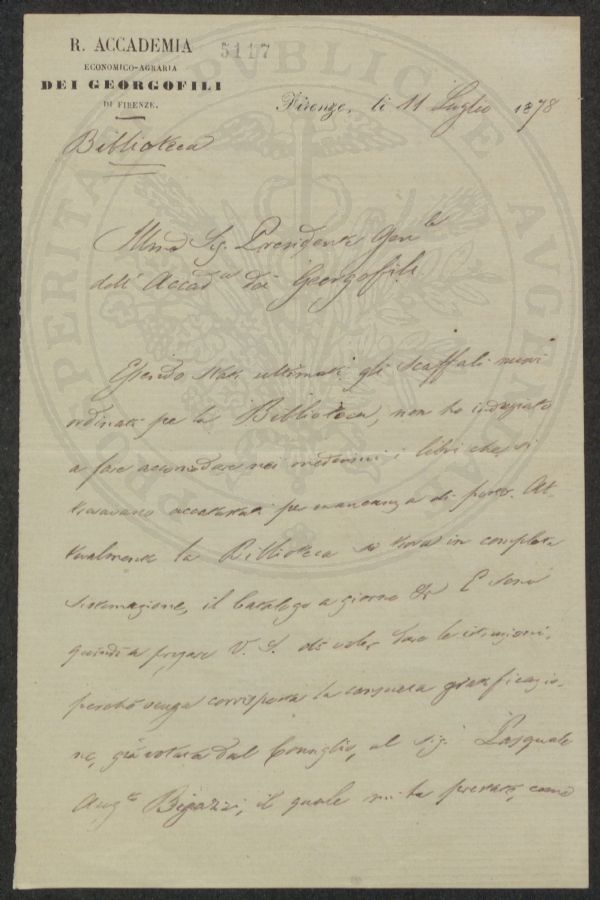 R. ACCADEMIA
ECONOMICO-AGRARIA
DEI GEORGOFILI
DI FIRENZE.
5117
Firenze, li 11 Luglio 1878
Biblioteca
Illmo Sig. Presidente Gen.le
dell' Accad.a dei Georgofili.
Essendo stati ultimati gli scaffali nuovi
ordinati per la Biblioteca, non ho indugiato
a fare accomodare nei medesimi i libri che si
trovavano accatastati per mancanza di posto. At-
tualmente la Biblioteca si trova in completa
sistemazione, il Catalogo a giorno &. E sono
quindi a pregare V. S. di voler dare le istruzioni,
perchè venga corrisposta la consueta gratificazio-
ne, già votata dal Consiglio, al Sig. Pasquale
Aug.to Bigazzi, il quale mi ha prestato, come
PROSPERITATI PUBLICAE AUGENDAE